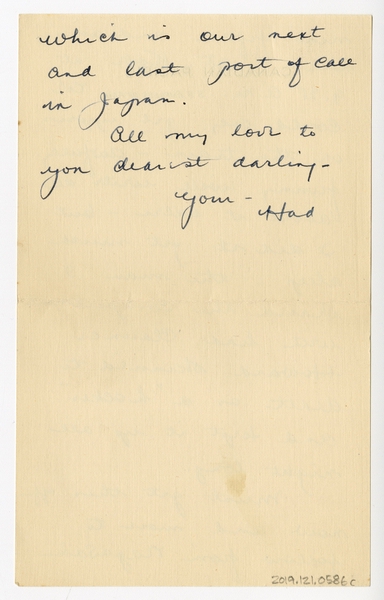 which is our next
and last port of call
in Japan.
All my love to
you dearest darling -
Your -
Had
2019.121.0586c